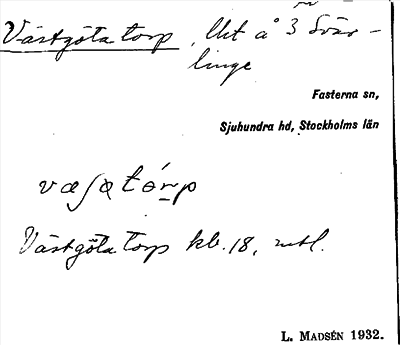 Västgöta torp, lht å 3 Svär-
linge
Fasterna sn,
Sjuhundra hd, Stockholms län
væʃɷtórp
Västgöta Torp kb. 18, mtl.
L. MADSÉN 1932.